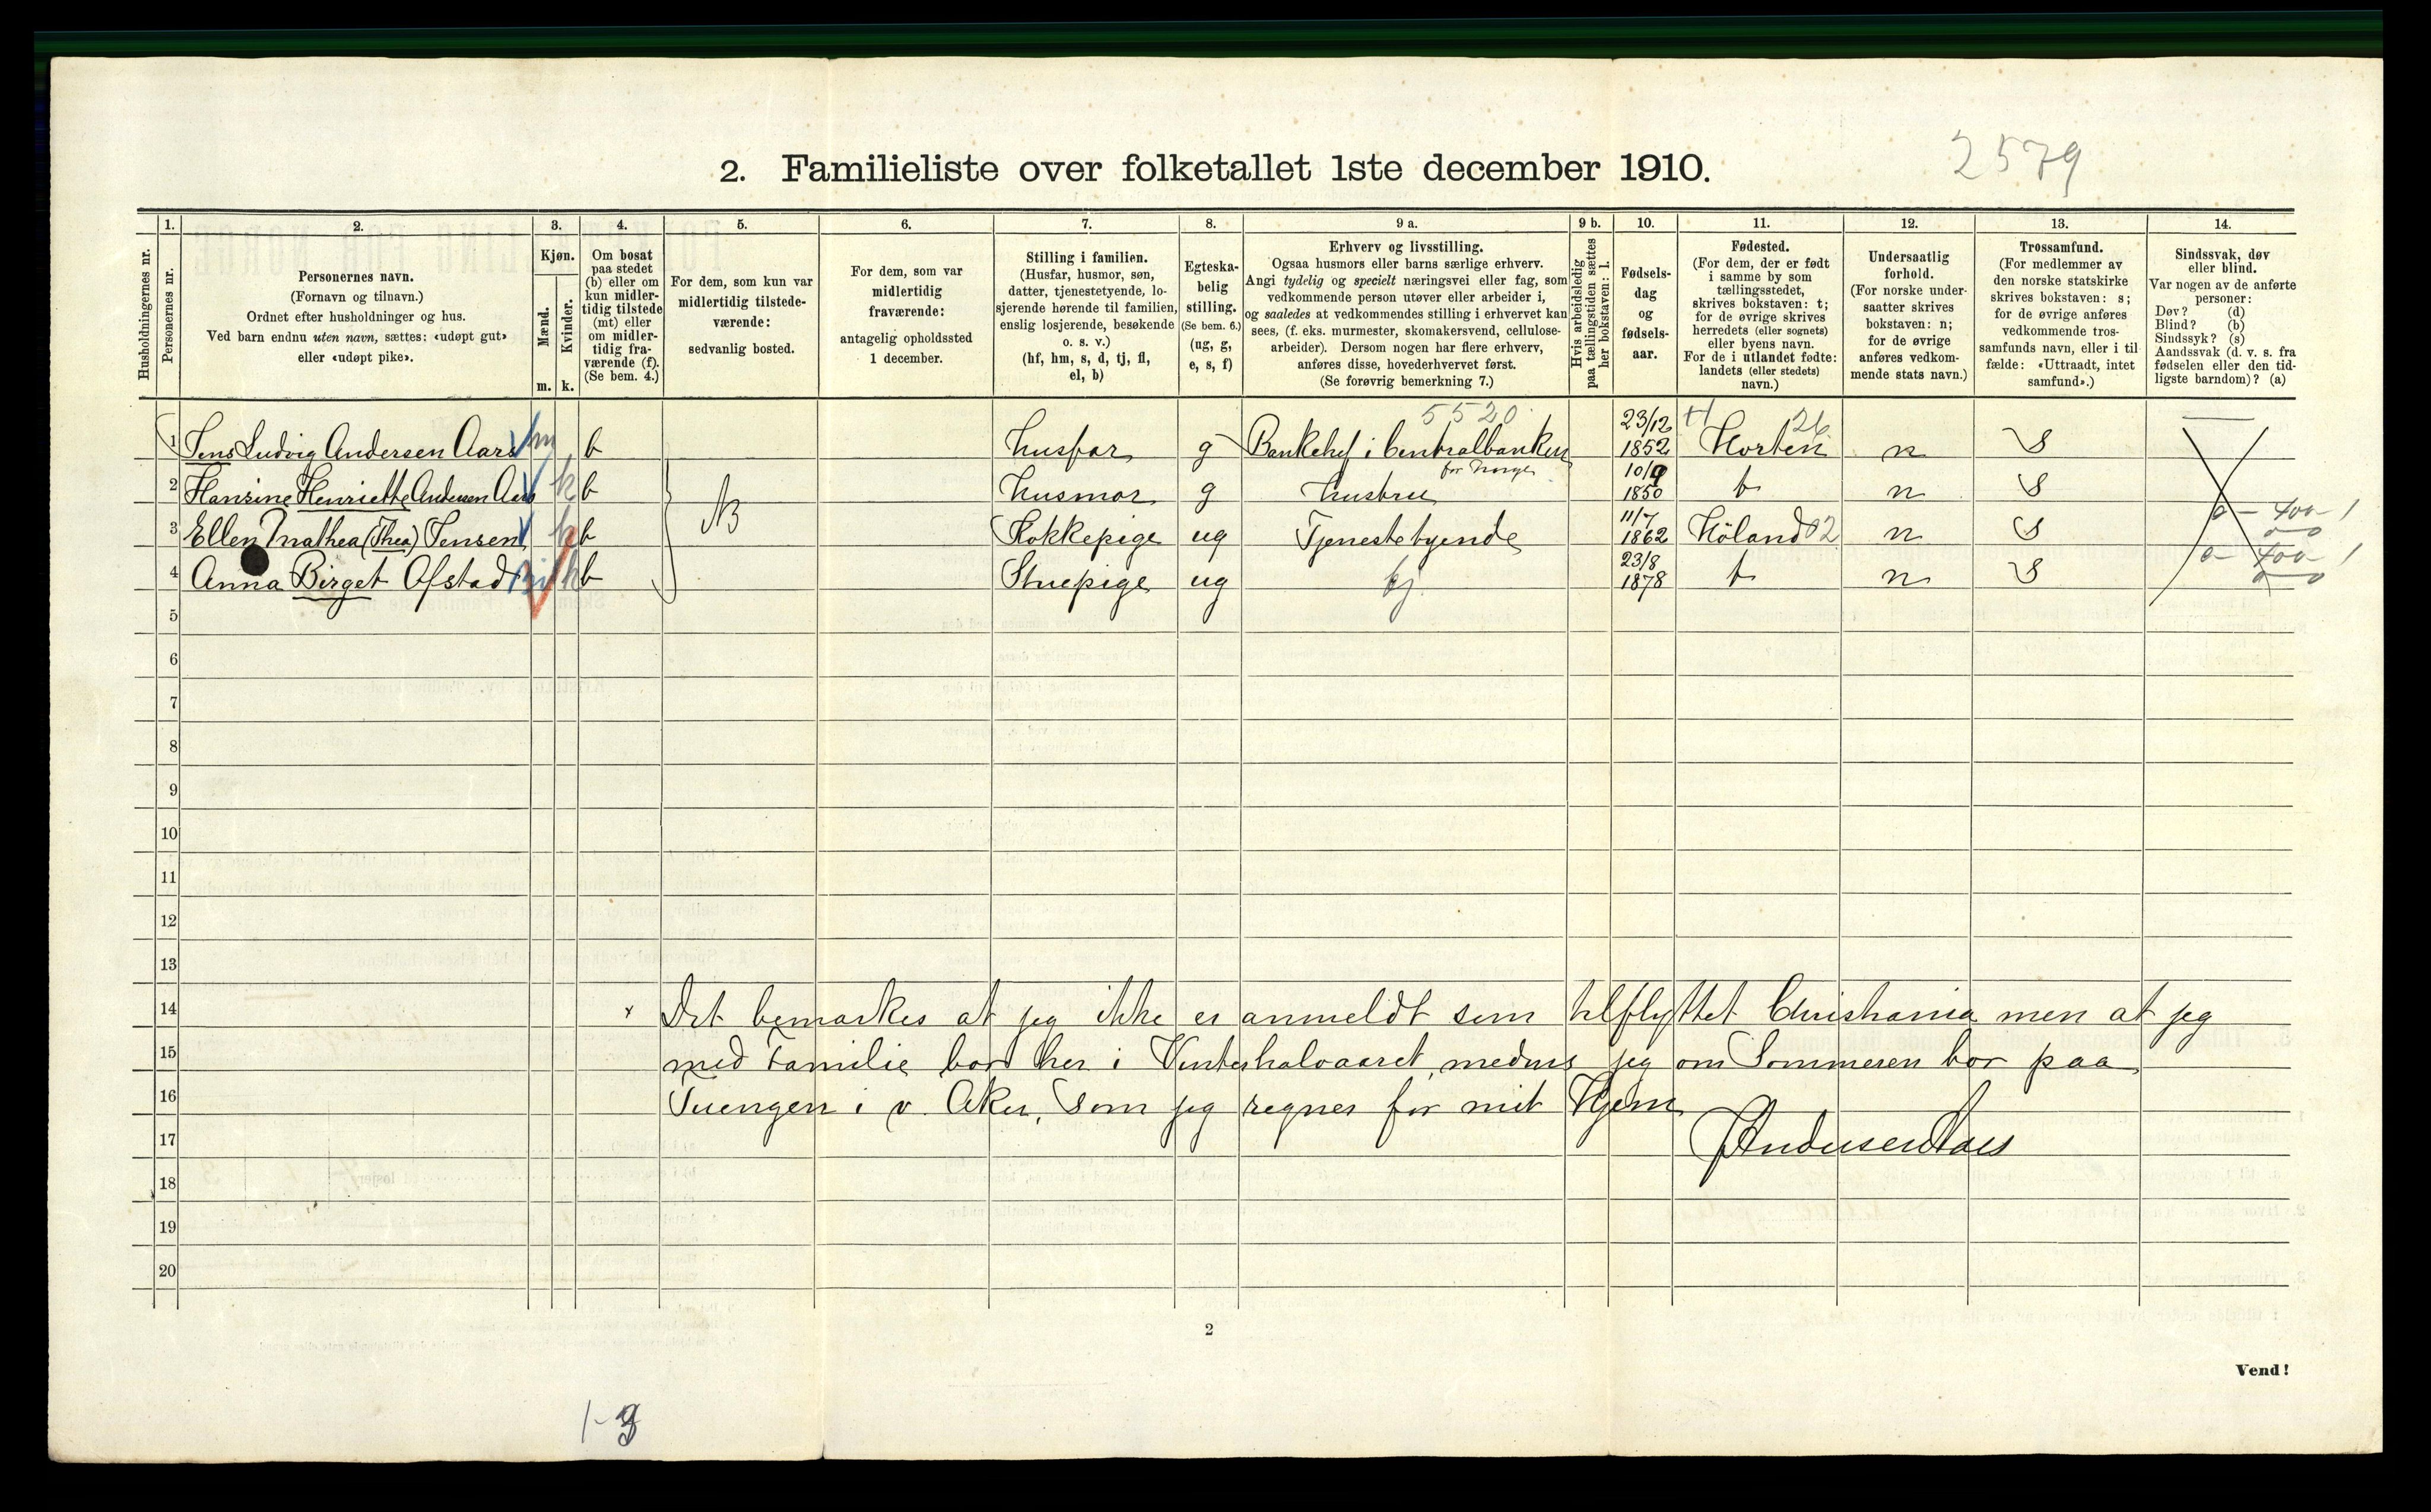 2579
2. Familieliste over folketallet 1ste december 1910.
Husholdningernes nr.
1. Personernes nr.
2. Personernes navn.
(Fornavn og tilnavn.)
Ordnet efter husholdninger og hus.
Ved barn endnu uten navn, sættes: «udøpt gut»
eller «udøpt pike».
3. Kjøn.
Mænd. m.
Kvinder. k.
4. Om bosat
paa stedet
(b) eller om
kun midler-
tidig tilstede
(mt) eller
om midler-
tidig fra-
værende (f).
(Se bem. 4.)
5. For dem, som kun var
midlertidig tilstede-
værende:
sedvanlig bosted.
6. For dem, som var
midlertidig
fraværende:
antagelig opholdssted
1 december.
7. Stilling i familien.
(Husfar, husmor, søn,
datter, tjenestetyende, lo-
sjerende hørende til familien,
enslig losjerende, besøkende
o. s. v.)
(hf, hm, s, d, tj, fl,
el, b)
8. Egteska-
belig
stilling.
(Se bem. 6.)
(ug, g,
e, s, f)
9 a. Erhverv og livsstilling.
Ogsaa husmors eller barns særlige erhverv.
Angi tydelig og specielt næringsvei eller fag, som
vedkommende person utøver eller arbeider i,
og saaledes at vedkommendes stilling i erhvervet kan
sees, (f. eks. murmester, skomakersvend, cellulose-
arbeider). Dersom nogen har flere erhverv,
anføres disse, hovederhvervet først.
(Se forøvrig bemerkning 7.)
9 b. Hvis arbeidsledig
paa tællingstiden sættes
her bokstaven: l.
10. Fødsels-
dag
og
fødsels-
aar.
11. Fødested.
(For dem, der er født
i samme by som
tællingsstedet,
skrives bokstaven: t;
for de øvrige skrives
herredets (eller sognets)
eller byens navn.
For de i utlandet fødte:
landets (eller stedets)
navn.)
12. Undersaatlig
forhold.
(For norske under-
saatter skrives
bokstaven: n;
for de øvrige
anføres vedkom-
mende stats navn.)
13. Trossamfund.
(For medlemmer av
den norske statskirke
skrives bokstaven: s;
for de øvrige anføres
vedkommende tros-
samfunds navn, eller i til-
fælde: «Uttraadt, intet
samfund».)
14. Sindssvak, døv
eller blind.
Var nogen av de anførte
personer:
Døv? (d)
Blind? (b)
Sindssyk? (s)
Aandssvak (d. v. s. fra
fødselen eller den tid-
ligste barndom)? (a)
5520
1 Jens Ludvig Andersen Aars m b Husfar g Bankchef i Centralbanken for Norge 23/12 1852 Horten 26 n S
2 Hansine Henriette Andersen Aars k b Husmor g Hustru 10/9 1850 t n S
NB
3 Ellen Mathea (Thea) Jensen k b Kokkepige ug Tjenestetyende 11/7 1862 Höland 02 n S 0 - 400 - 1
4 Anna Birget Ofstad k b Stuepige ug tj 23/8 1878 t n S 0 - 400 - 1
5
6
7
8
9
10
11
12
13
14 x Det bemærkes at jeg ikke er anmeldt som tilflyttet Christiania men at jeg
15 med Familie bor her i Vinterhalvaaret, medens jeg om Sommeren bor paa
16 Tuengen i v. Aker, som jeg regner for mit Hjem
17 JAndersenAars
18
19
20
2
Vend!
1-3